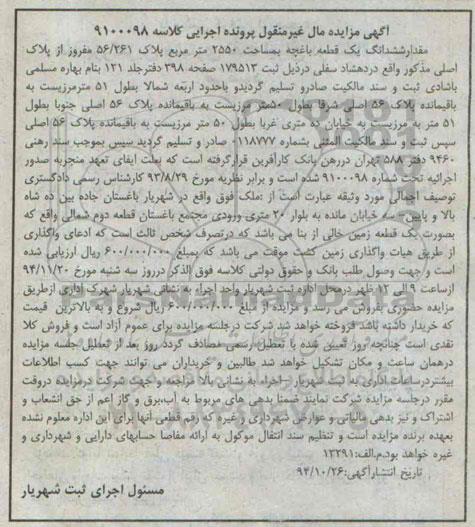 آگهی مزایده مال غیرمنقول پرونده اجرایی کلاسه ۹۱۰۰۰۹۸
مقدارششدانگ یک قطعه باغچه بمساحت ۲۵۵۰ متر مربع پلاک ۵۶/۲۶۱ مفروز از پلاک
اصلی مذکور واقع دردهشاد سفلی درذیل ثبت ۱۷۹۵۱۳ صفحه ۳۹۸ دفترجلد ۱۲۱ بنام بهاره مسلمی
باشادی ثبت و سند مالکیت صادرو تسلیم گردیدو باحدود اربعه شمالا بطول ۵۱ مترمرزیست به
باقیمانده پلاک ۵۶ اصلی شرقا بطول ۵۰متر مرزیست به باقیمانده پلاک ۵۶ اصلی جنوبا بطول
۵۱ متر به مرزیست به خیابان ده متری غربا بطول ۵۰ متر مرزیست به باقیمانده پلاک ۵۶ اصلی
سپس ثبت و سند مالکیت المثنی بشماره ۱۱۸۷۷۷ صادر و تسلیم گردید سپس بموجب سند رهنی
۹۴۶۰ دفتر ۵۸۸ تهران دررهن بانک کارآفرین قرارگرفته است که بعلت ایفای تعهد منجربه صدور
اجرائیه تحت شماره ۹۱۰۰۰۹۸ شده است و برابر نظریه مورخ ۹۳/۸/۲۹ کارشناس رسمی دادگستری
توصیف اجمالی مورد وثیقه عبارت است از :ملک فوق واقع در شهریار باغستان جاده بین ده شاه
بالا و پایین -سه خیابان مانده به بلوار ۲۰ متری ورودی مجتمع باغستان قطعه دوم شمالی واقع که
بصورت یک قطعه زمین خالی از بنا می باشد که درتصرف شخص ثالث است که ادعای واگذاری
از طریق هیات واگذاری زمین کشت موقت می باشد که بمبلغ ۶۰۰/۰۰۰/۰۰۰ ریال ارزیابی شده
است و جهت وصول طلب بانک و حقوق دولتی کلاسه فوق الذکر درروز سه شنبه مورخ ۹۴/۱۱/۲۰
ازساعت ۹ الی ۱۲ ظهر درمحل اداره ثبت شهریار واحد اجراء به نشانی شهریار شهرک اداری ازطریق
مزایده حضوری بفروش می رسد و مزایده از مبلغ ۶۰۰/۰۰۰/۰۰۰ ریال شروع و به بالاترین قیمت
که خریدار داشته باشد فروخته خواهد شد شرکت درجلسه مزایده برای عموم آزاد است و فروش کلا
نقدی است چنانچه روز تعیین شده با تعطیل رسمی مصادف گردد روز بعد از تعطیل جلسه مزایده
درهمان ساعت و مکان تشکیل خواهد شد طالبین و خریداران می توانند جهت کسب اطلاعات
بیشتردرساعات اداری به ثبت شهریار - اجراء به نشانی بالا مراجعه و جهت شرکت درمزایده دروقت
مقرر درجلسه مزایده شرکت نمایند ضمنا بدهی های مربوط به آب،برق و گاز اعم از حق انشعاب و
اشتراک و نیز بدهی مالیاتی و عوارض شهرداری و غیره که رقم قطعی آنها برای این اداره معلوم نشده
بعهده برنده مزایده است و تنظیم سند انتقال موکول به ارائه مفاصا حسابهای دارایی و شهرداری و
غیره خواهد بود.م.الف:۱۳۲۹۱
تاریخ انتشارآگهی:۹۴/۱۰/۲۶
مسئول اجرای ثبت شهریار
ParsNamadData